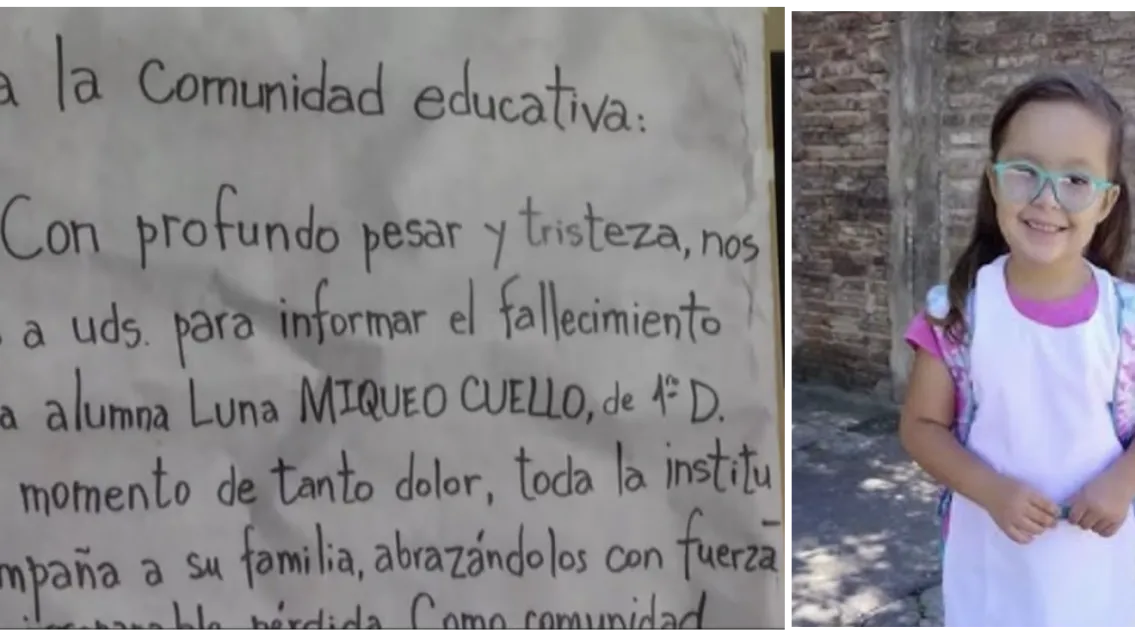 a la Comunidad educativa:
Con profundo pesar y tristeza, nos
a uds. para informar el fallecimiento
a alumna Luna MIQUEO CUELLO, de 1º D.
momento de tanto dolor, toda la institu
mpaña a su familia, abrazándolos con fuerza
pérdida. Como comunidad